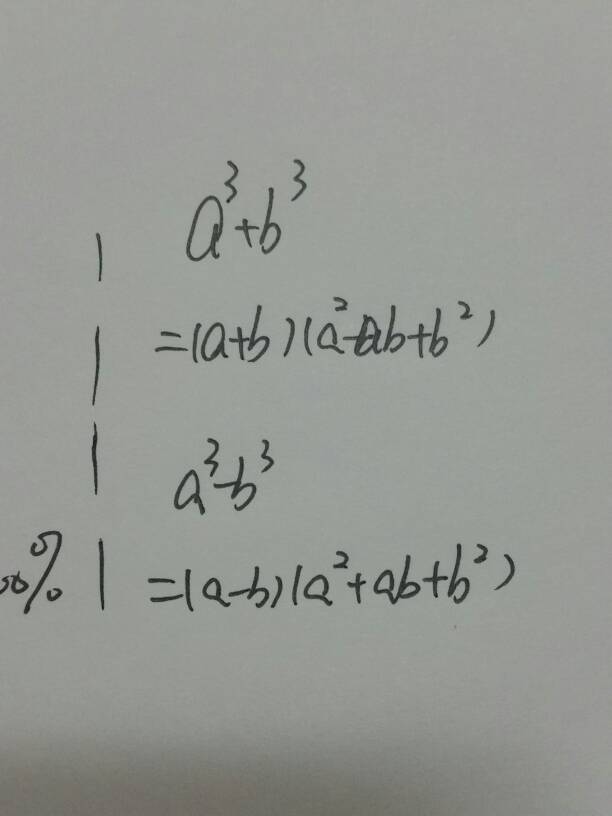 a³+b³
=(a+b)(a²-ab+b²)
a³-b³
%
=(a-b)(a²+ab+b²)